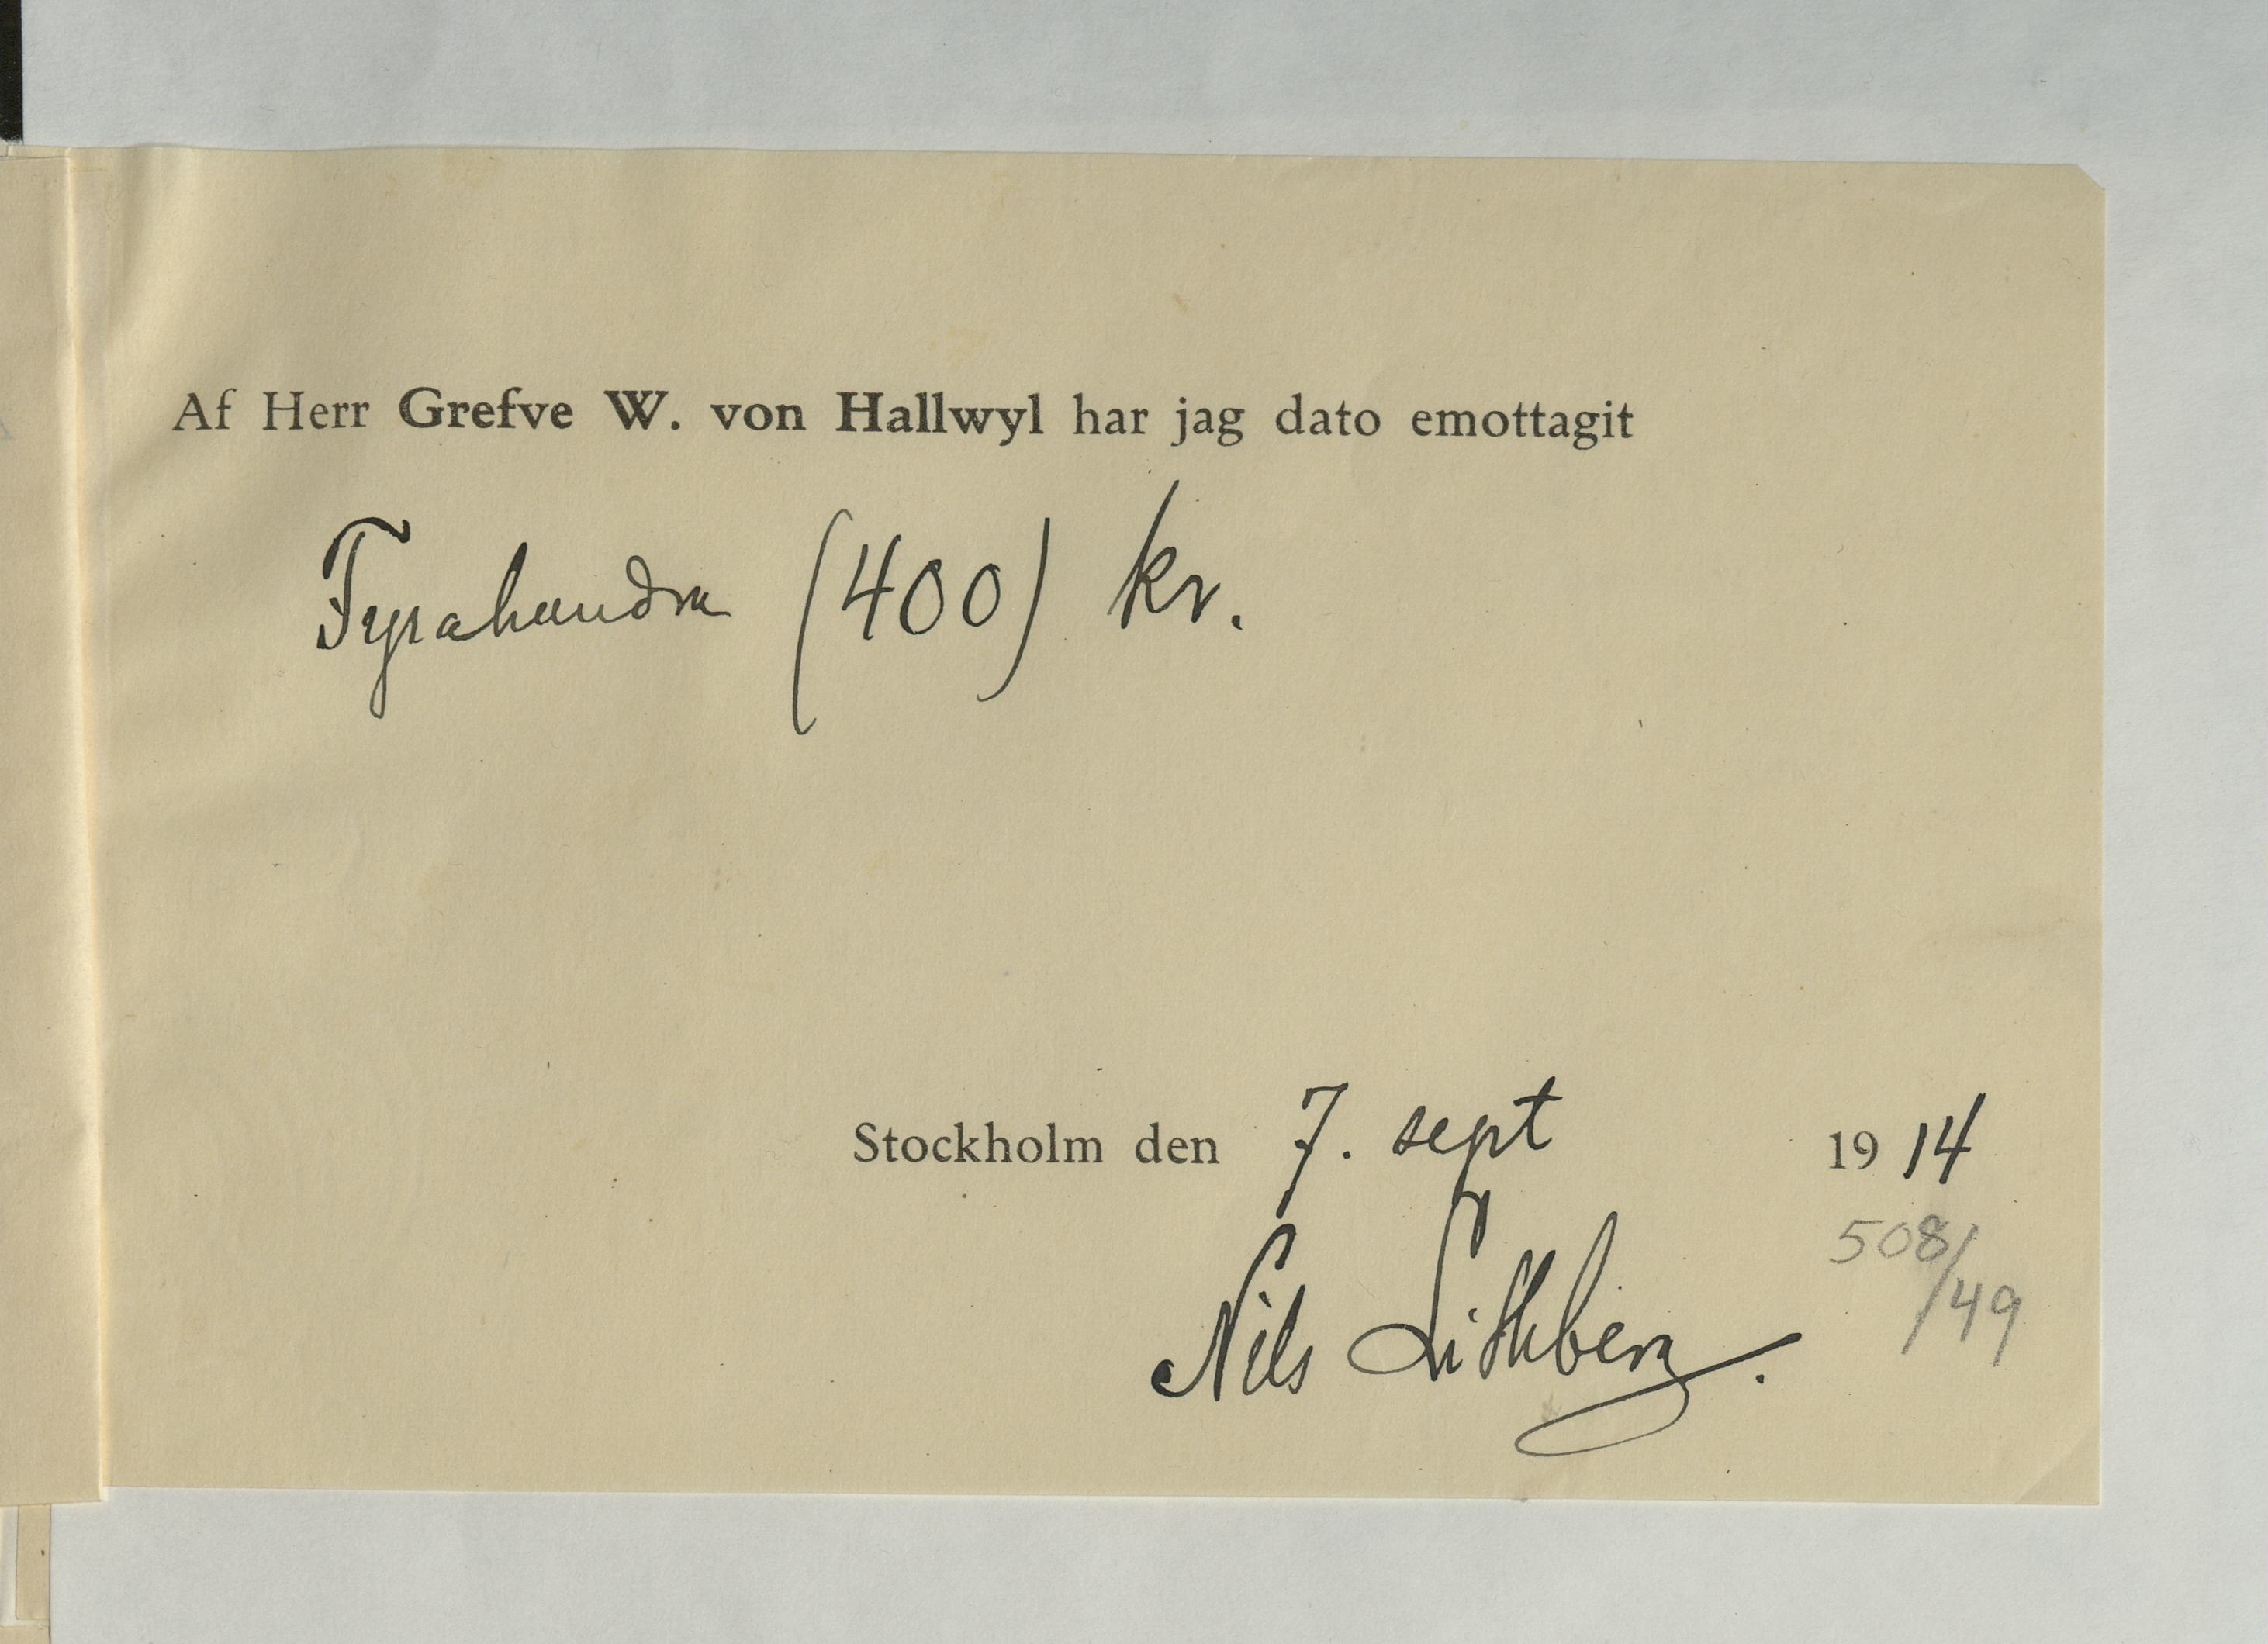 Af Herr Grefve W. von Hallwyl har jag dato emottagit
Fyrahundra (400) kr.
Stockholm den 7. sept 1914
Nils Lithberg.
508/49